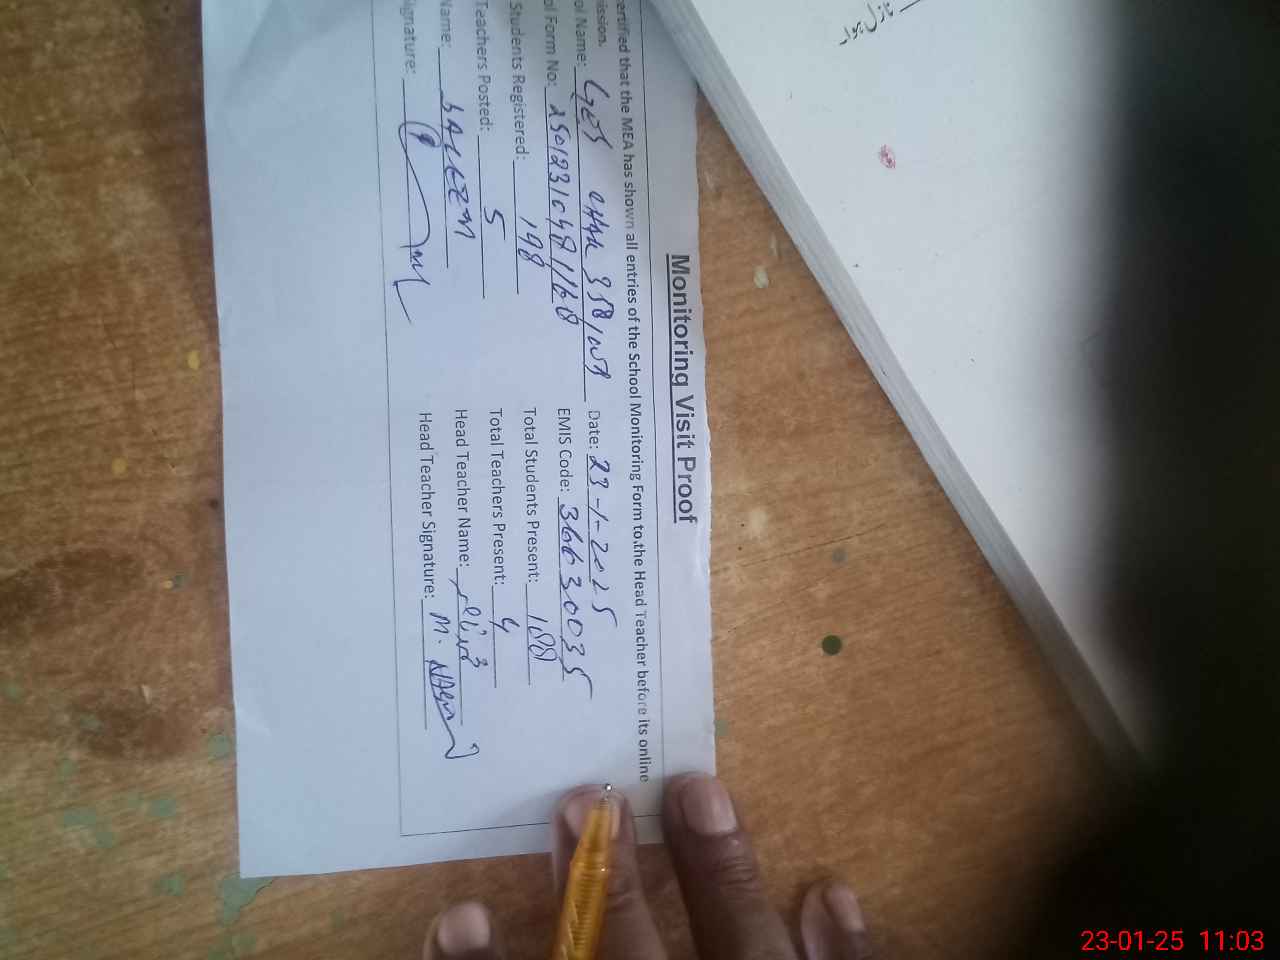 Monitoring Visit Proof
ertified that the MEA has shown all entries of the School Monitoring Form to the Head Teacher before its online
ission.
ol Name: GES CHAK 358/WB Date: 23-1-2025
ol Form No: EMIS Code: 36630035
Students Registered: 198 Total Students Present: 188
Teachers Posted: 5 Total Teachers Present: 4
Name: Head Teacher Name:
ignature: Head Teacher Signature: M.
نازل ہوا
23-01-25 11:03